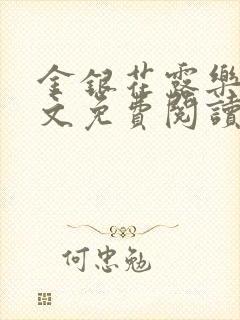 金銀花露樂
文免費閱讀
何忠勉